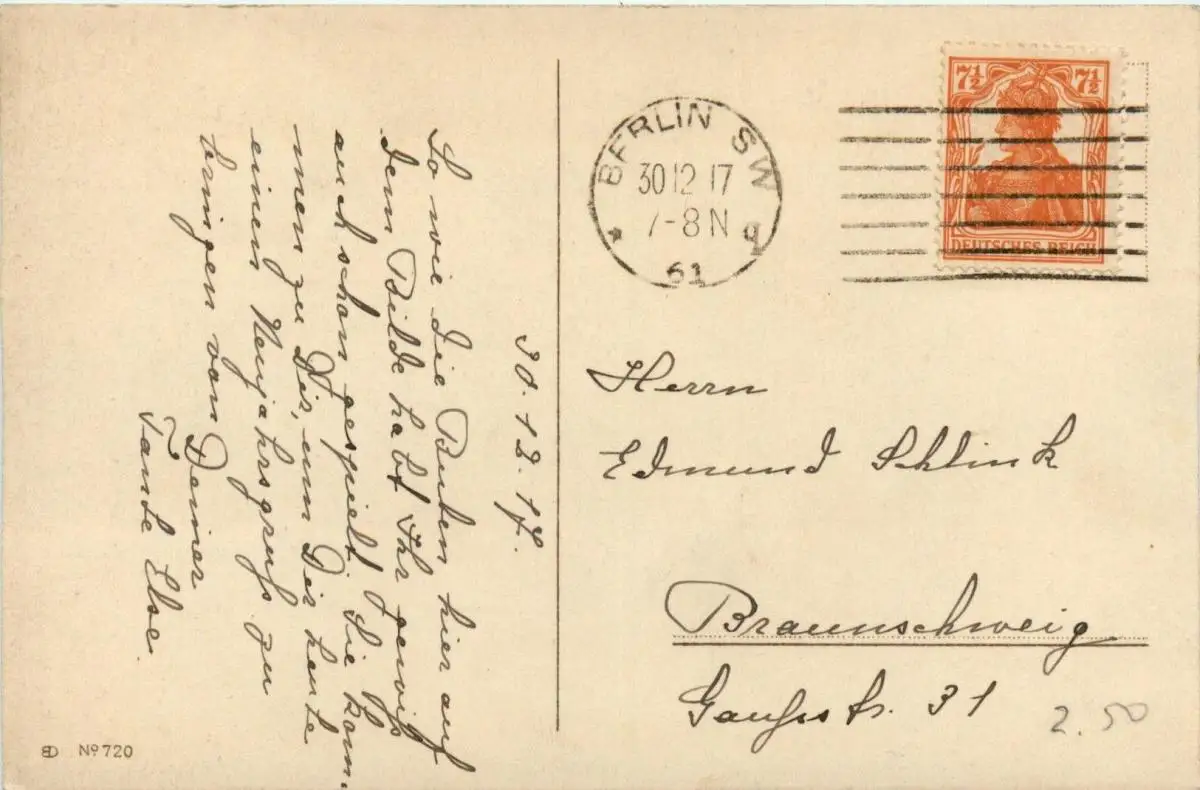 30.12.17.
So wie die Buben hier auf
dem Bilde habt Ihr gewiß
auch schon gespielt. Sie kom-
men zu Dir, um Dir heute
einen Neujahrsgruß zu
bringen von Deiner
Tante Else.
BERLIN SW
30 12 17
7-8 N
* 61 q
7½ 7½
DEUTSCHES REICH
Herrn
Edmund Schlink
Braunschweig
Gaußstr. 31
2.50
BD Nº 720